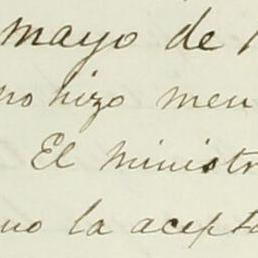 mayo de 1
no hizo men
El ministr
no la acepta